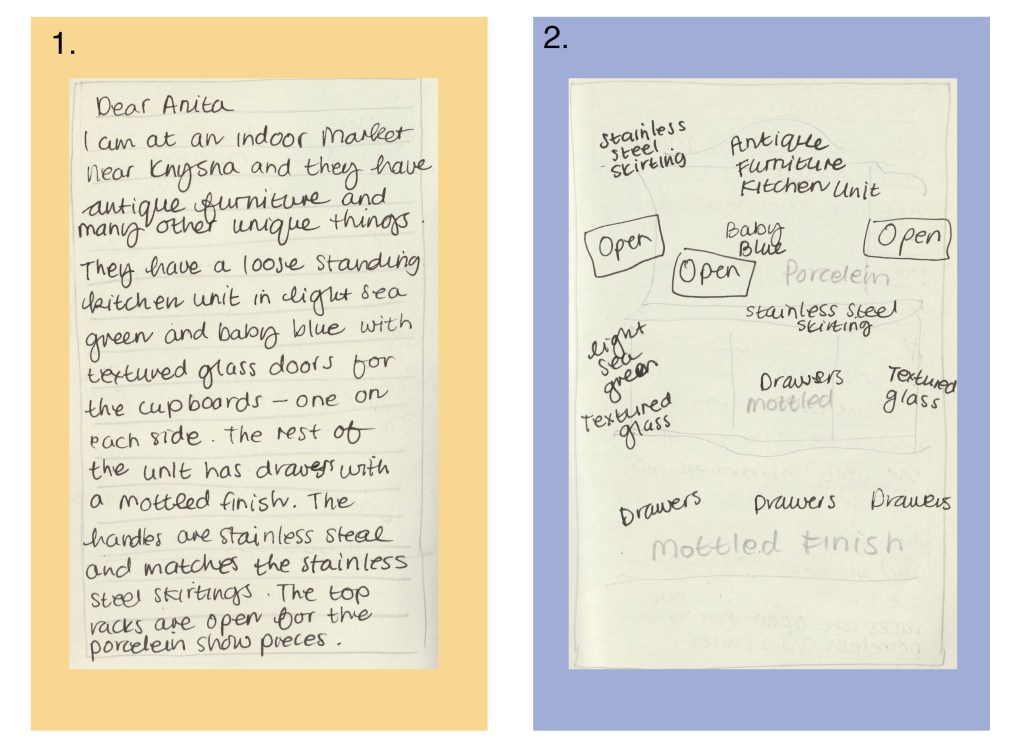 1.
Dear Anita
I am at an indoor market
near Knysna and they have
antique furniture and
many other unique things.
They have a loose standing
kitchen unit in light sea
green and baby blue with
textured glass doors for
the cupboards - one on
each side. The rest of
the unit has drawers with
a mottled finish. The
handles are stainless steel
and matches the stainless
steel skirtings. The top
racks are open for the
porcelein show pieces.
2.
Stainless
Steel
Skirting
Antique
Furniture
Kitchen Unit
Open
Baby
Blue
Open
Open
Porcelein
Stainless Steel
Skirting
light
sea
green
Textured
glass
Drawers
Mottled
Textured
glass
Drawers
Drawers
Drawers
Mottled Finish